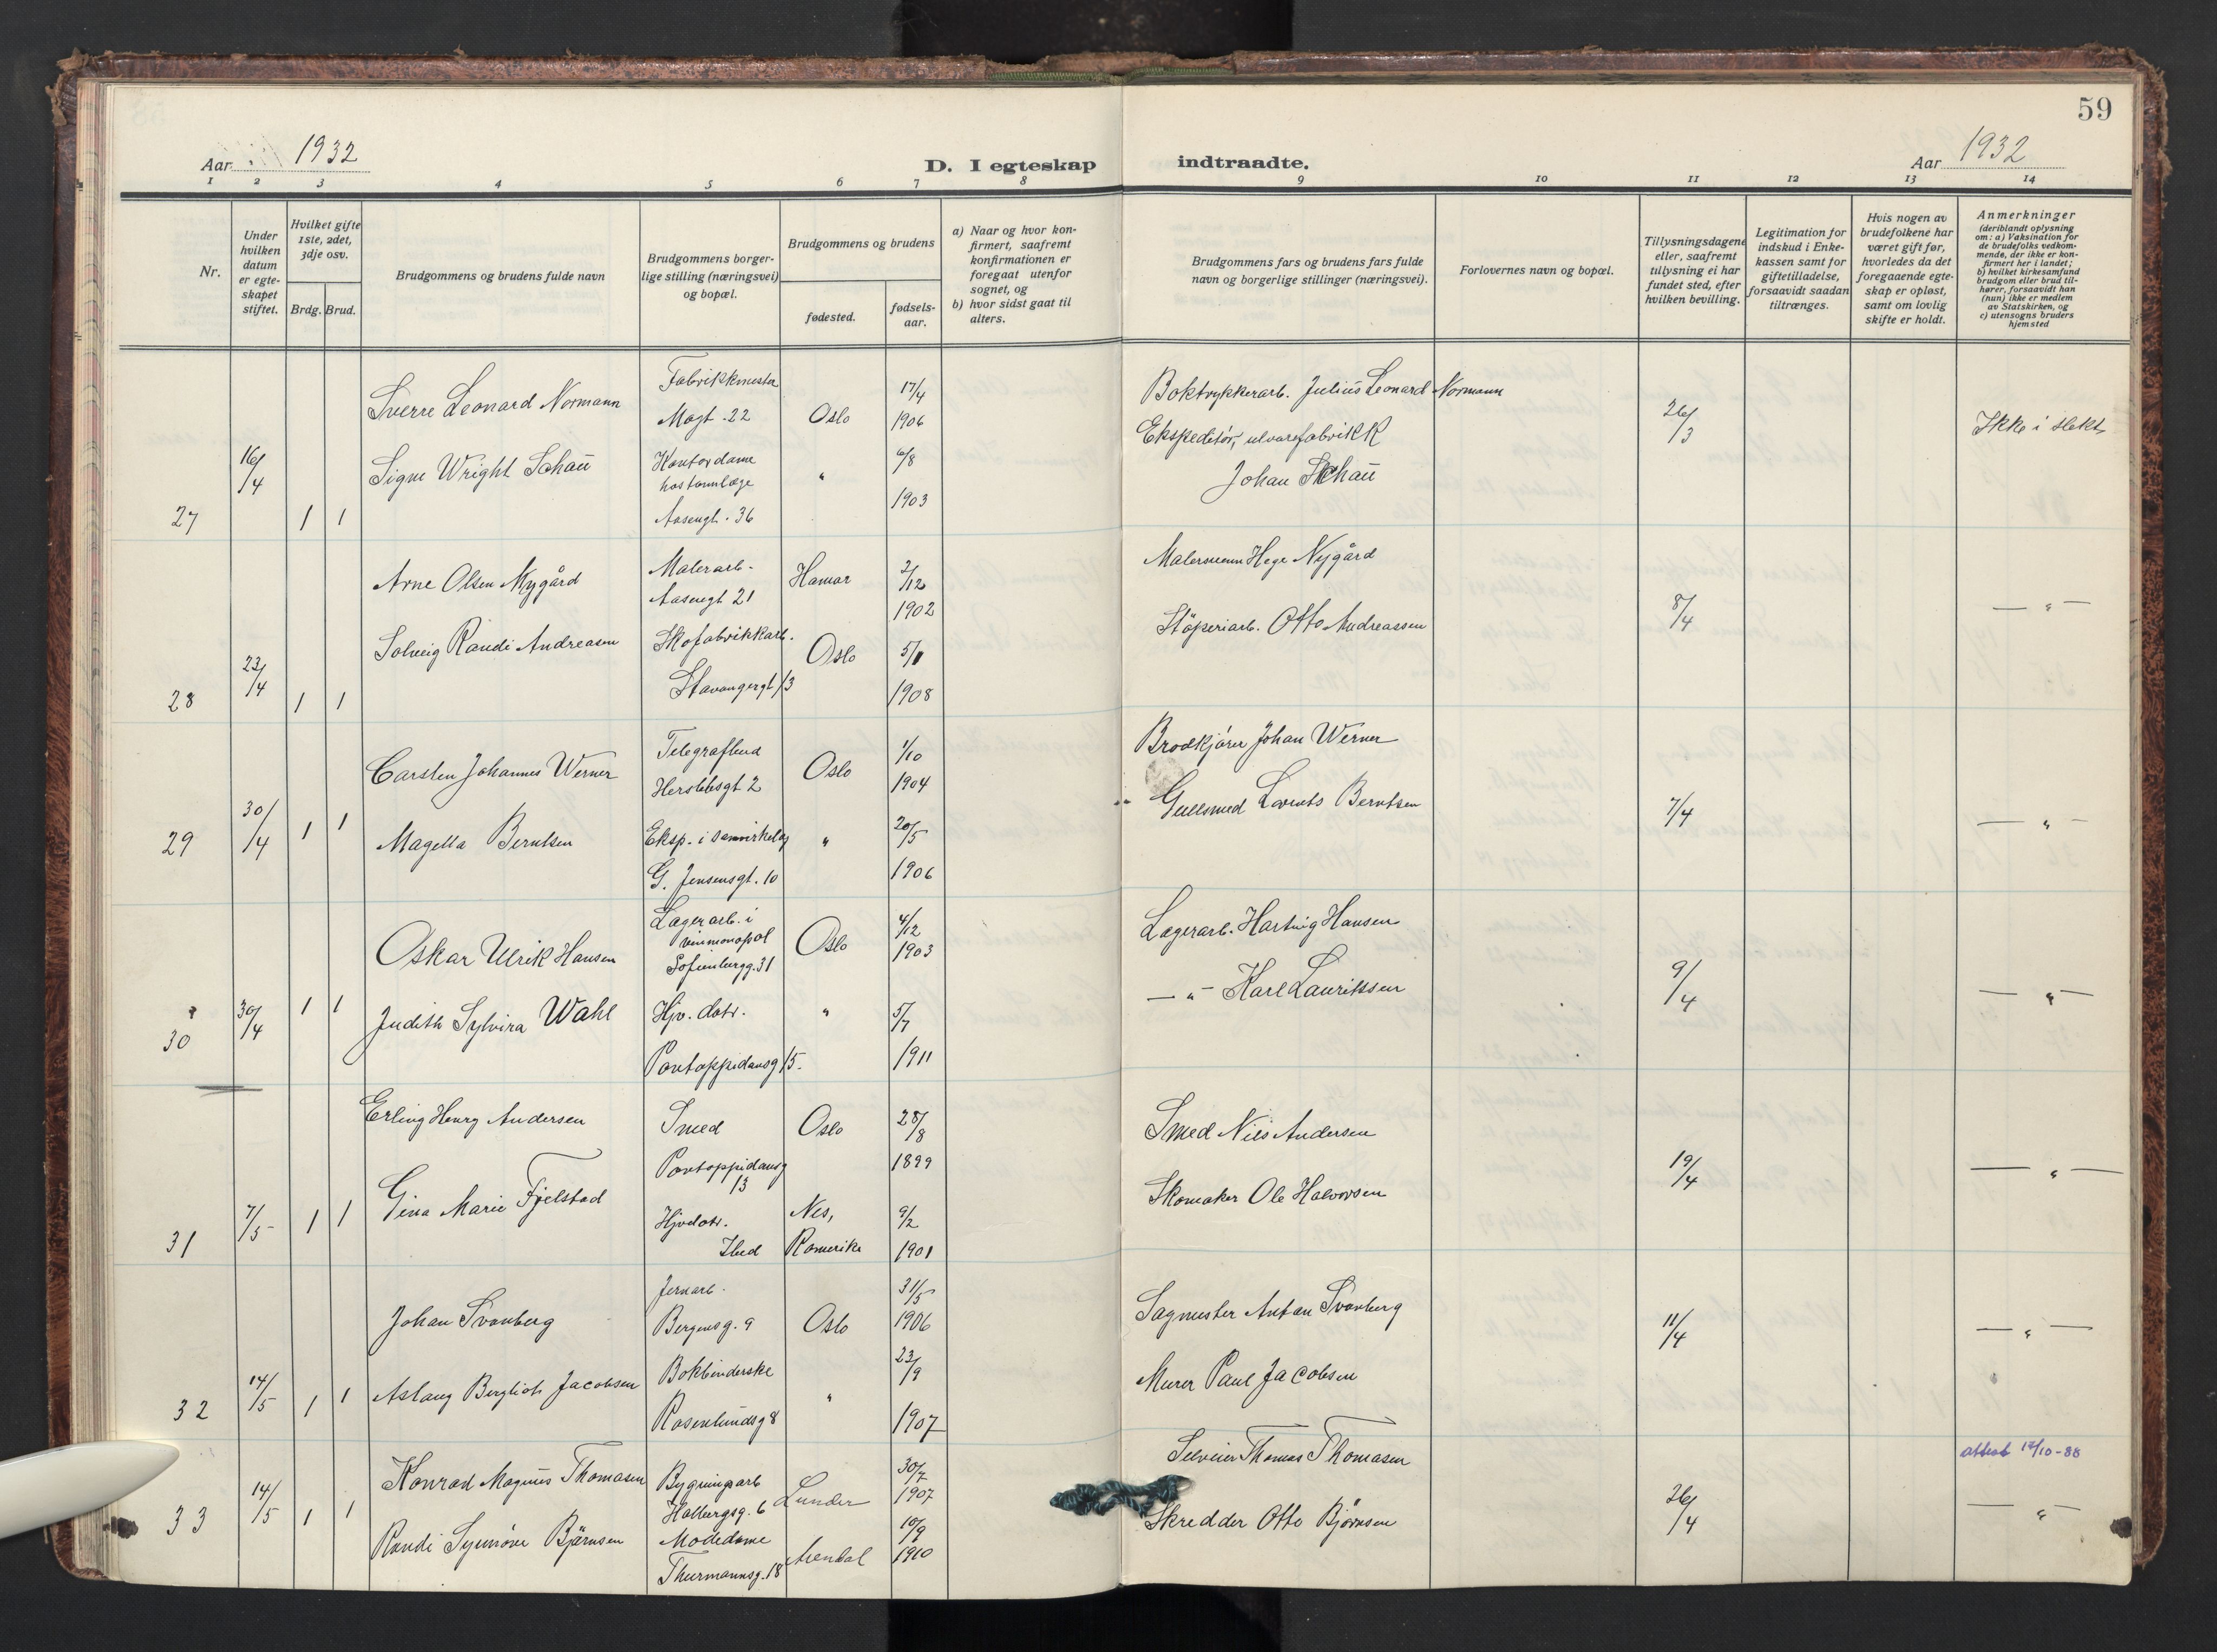 59
Aar 1932
D. I egteskap indtraadte.
Aar 1932
1 2 3 4 5 6 7 8 9 10 11 12 13 14
Nr.
Under hvilken datum er egte-skapet stiftet.
Hvilket gifte 1ste, 2det, 3dje osv.
Brdg. Brud.
Brudgommens og brudens fulde navn
Brudgommens borger-lige stilling (næringsvei) og bopæl.
Brudgommens og brudens
fødested.
fødsels-aar.
a) Naar og hvor kon-firmert, saafremt konfirmationen er foregaat utenfor sognet, og
b) hvor sidst gaat til alters.
Brudgommens fars og brudens fars fulde navn og borgerlige stillinger (næringsvei).
Forlovernes navn og bopæl.
Tillysningsdagene eller, saafremt tillysning ei har fundet sted, efter hvilken bevilling.
Legitimation for indskud i Enke-kassen samt for giftetilladelse, forsaavidt saadan tiltrænges.
Hvis nogen av brudefolkene har været gift før, hvorledes da det foregaaende egte-skap er opløst, samt om lovlig skifte er holdt.
Anmerkninger (deriblandt oplysning om: a) Vaksination for de brudefolks vedkom-mende, der ikke er kon-firmert her i landet; b) hvilket kirkesamfund brudgom eller brud til-hører, forsaavidt han (hun) ikke er medlem av Statskirken, og c) utensogns bruders hjemsted
27 16/4 1 1
Sverre Leonard Normann
Fabrikkmester
Magt. 22
Oslo
17/4
1906
Boktrykkerarb. Julius Leonard Normann
26/3
Ikke i slekt
Signe Wright Schau
Kontordame
hos tannlæge
Aasengt. 36
"
6/8
1903
Ekspeditör, ulvarefabrikk
Johan Schau
28 23/4 1 1
Arne Olsen Nygård
Malerarb.
Aasengt 21
Hamar
2/12
1902
Malersvenn Hege Nygård
8/4
— " —
Solveig Randi Andreasen
Skofabrikkarb.
Stavangergt 13
Oslo
5/1
1908
Stöperiarb. Otto Andreassen
29 30/4 1 1
Carsten Johannes Werner
Telegrafbud
Herslebsgt 2
Oslo
1/10
1904
Brodkjörer Johan Werner
7/4
— " —
Magella Berntsen
Eksp. i Samvirkelag
G. Jensensgt. 10
"
20/5
1906
Gullsmed Lorents Berntsen
30 30/4 1 1
Oskar Ulrik Hansen
Lagerarb. i
vinmonopol
Sofienbergg. 31
Oslo
4/12
1903
Lagerarb. Hartvig Hansen
9/4
— " —
Judith Sylvira Wahl
Hjv. datr.
Pontoppidansg 15.
"
5/7
1911
— " — Karl Lauritssen
31 7/5 1 1
Erling Henry Andersen
Smed
Pontoppidansg
13
Oslo
28/8
1899
Smed Nils Andersen
19/4
— " —
Gina Marie Fjelstad
Hjvdatr.
Ibid
Nes,
Romerike
9/2
1901
Skomaker Ole Halvorsen
32 14/5 1 1
Johan Svanberg
Jernarb.
Bergensg. 9
Oslo
31/5
1906
Sagmester Anton Svanberg
11/4
— " —
Aslaug Bergliot Jacobsen
Bokbinderske
Rosenlundsg 8
"
23/9
1907
Murer Paul Jacobsen
33 14/5 1 1
Konrad Magnus Thomasen
Bygningsarb
Holbergsg. 6
Lunder
30/7
1907
Selveier Thomas Thomasen
26/4
attest 14/10-88
— " —
Randi Synnöve Björnsen
Modedame
Thurmannsg. 18
Arendal
10/9
1910
Skredder Otto Björnsen